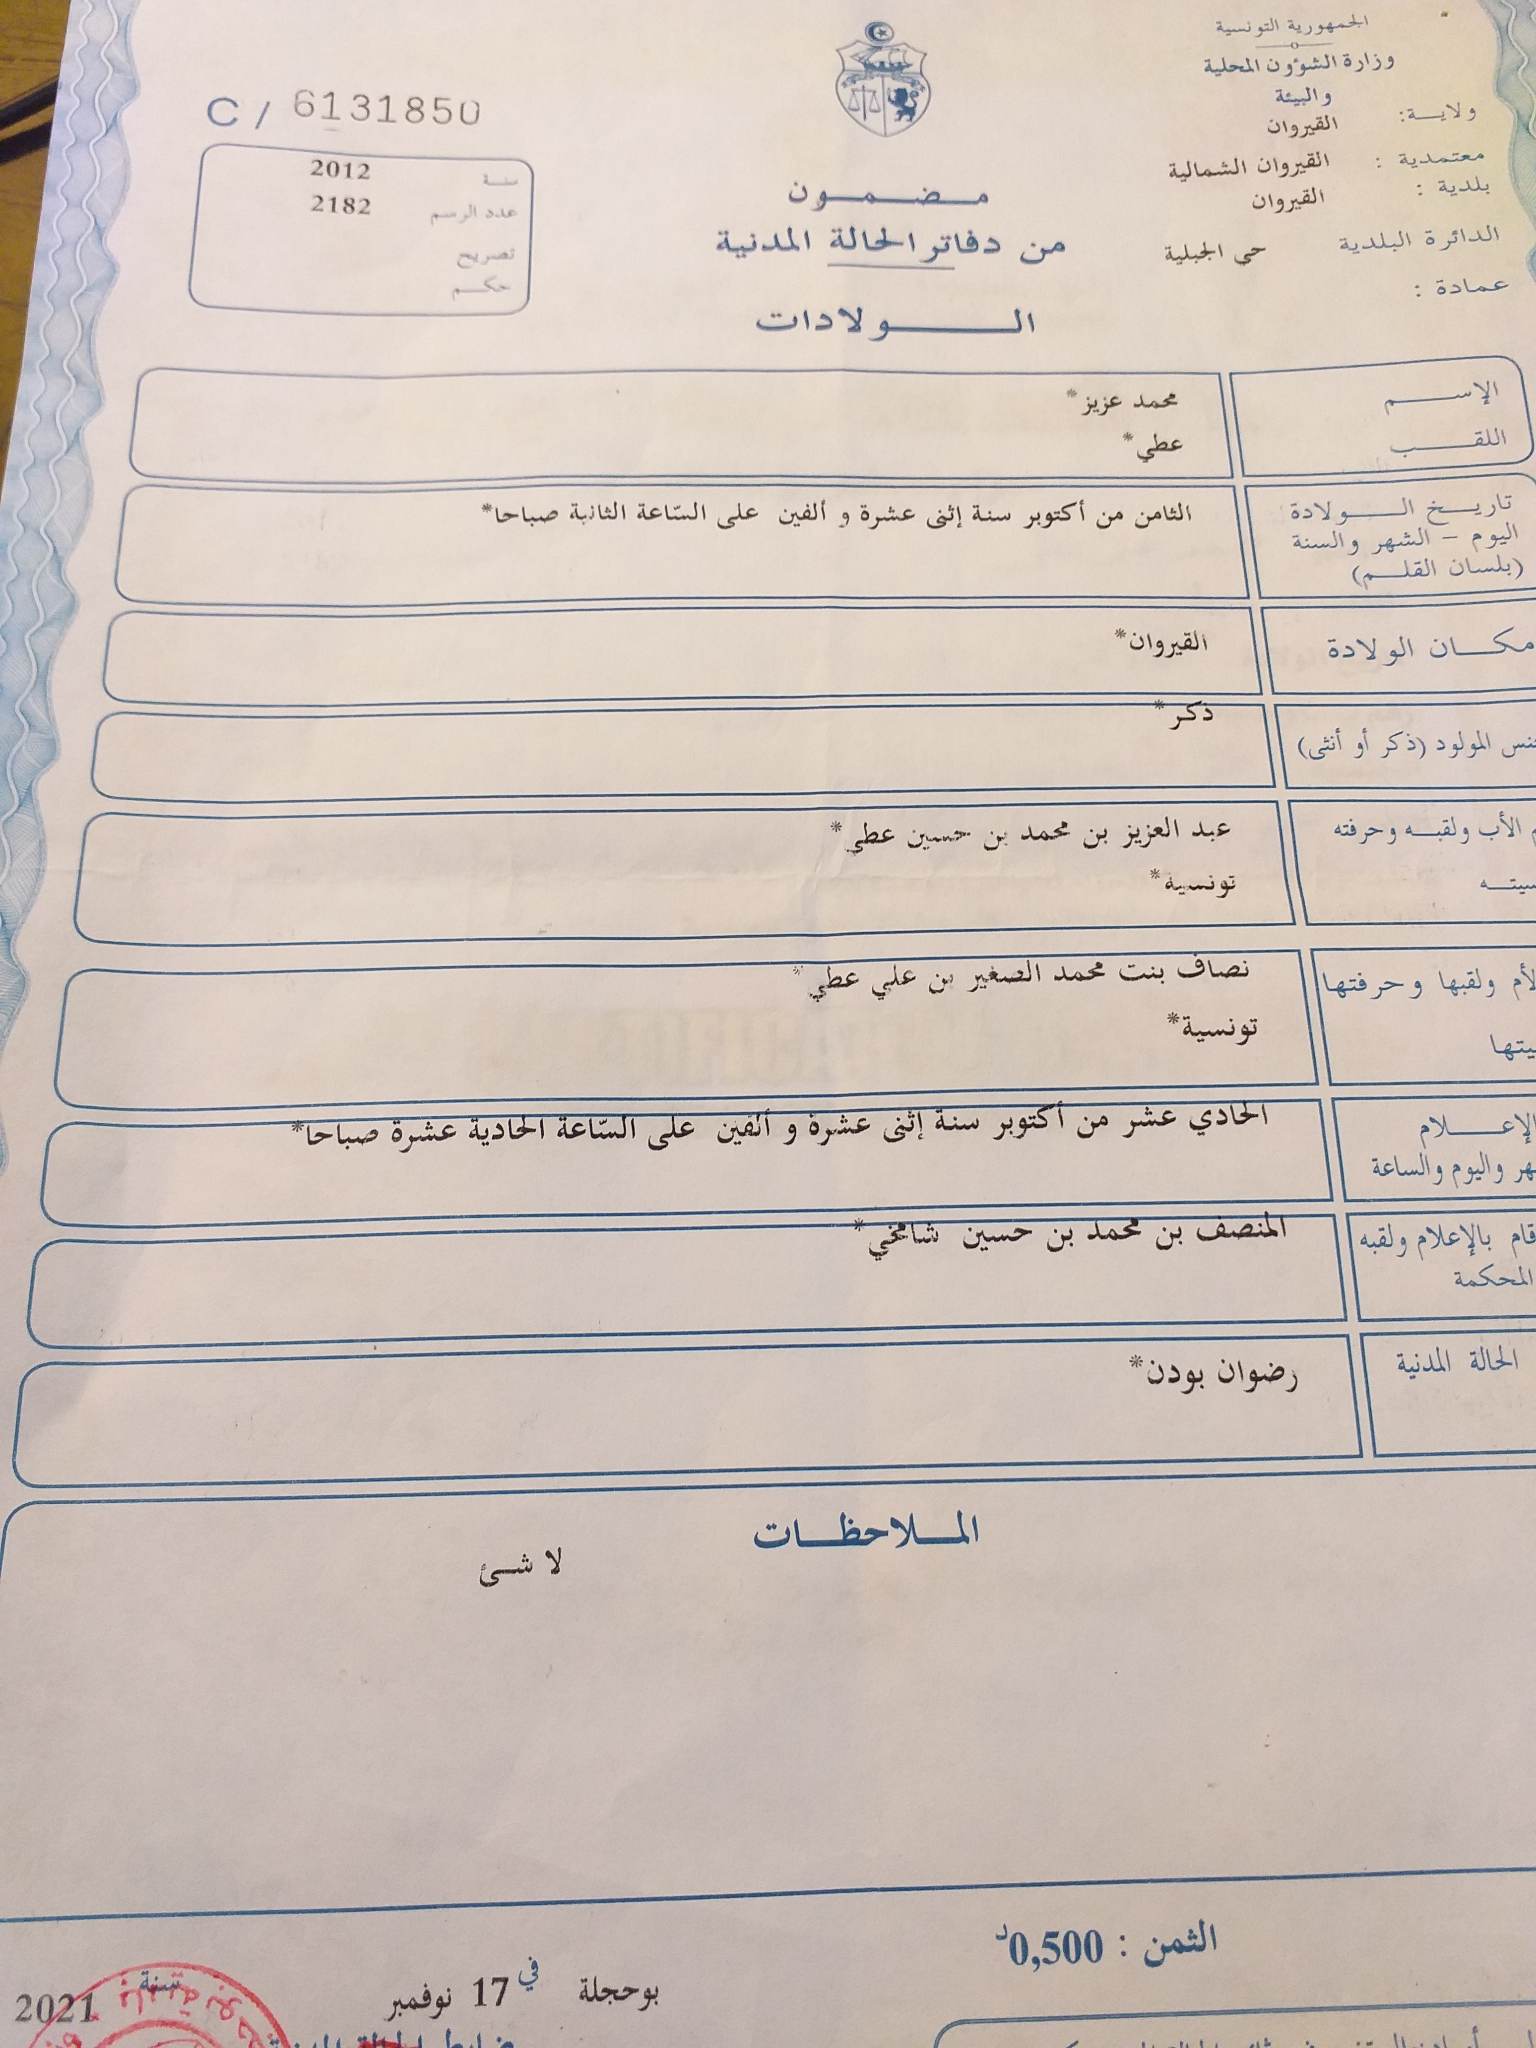 الجمهورية التونسية
وزارة الشؤون المحلية
والبيئة
ولاية: القيروان
معتمدية: القيروان الشمالية
بلدية: القيروان
الدائرة البلدية حي الجبلية
عمادة:
C / 6131850
سنة 2012
عدد الرسم 2182
تصريح
حكم
مضمون
من دفاتر الحالة المدنية
الولادات
الإسم محمد عزيز*
اللقب عطي*
تاريخ الولادة الثامن من أكتوبر سنة إثنى عشرة و ألفين على السّاعة الثانية صباحا*
اليوم - الشهر والسنة
(بلسان القلم)
مكان الولادة القيروان*
ذكر*
المولود (ذكر أو أنثى)
الأب ولقبه وحرفته عبد العزيز بن محمد بن حسين عطي*
تونسية*
ولقبها وحرفتها نصاف بنت محمد الصغير بن علي عطي*
تونسية*
الإعلام الحادي عشر من أكتوبر سنة إثنى عشرة و ألفين على السّاعة الحادية عشرة صباحا*
واليوم والساعة
قام بالإعلام ولقبه المنصف بن محمد بن حسين شامخي*
المحكمة
الحالة المدنية رضوان بودن*
الملاحظات
لا شئ
الثمن : 0,500د
بوحجلة في 17 نوفمبر سنة 2021